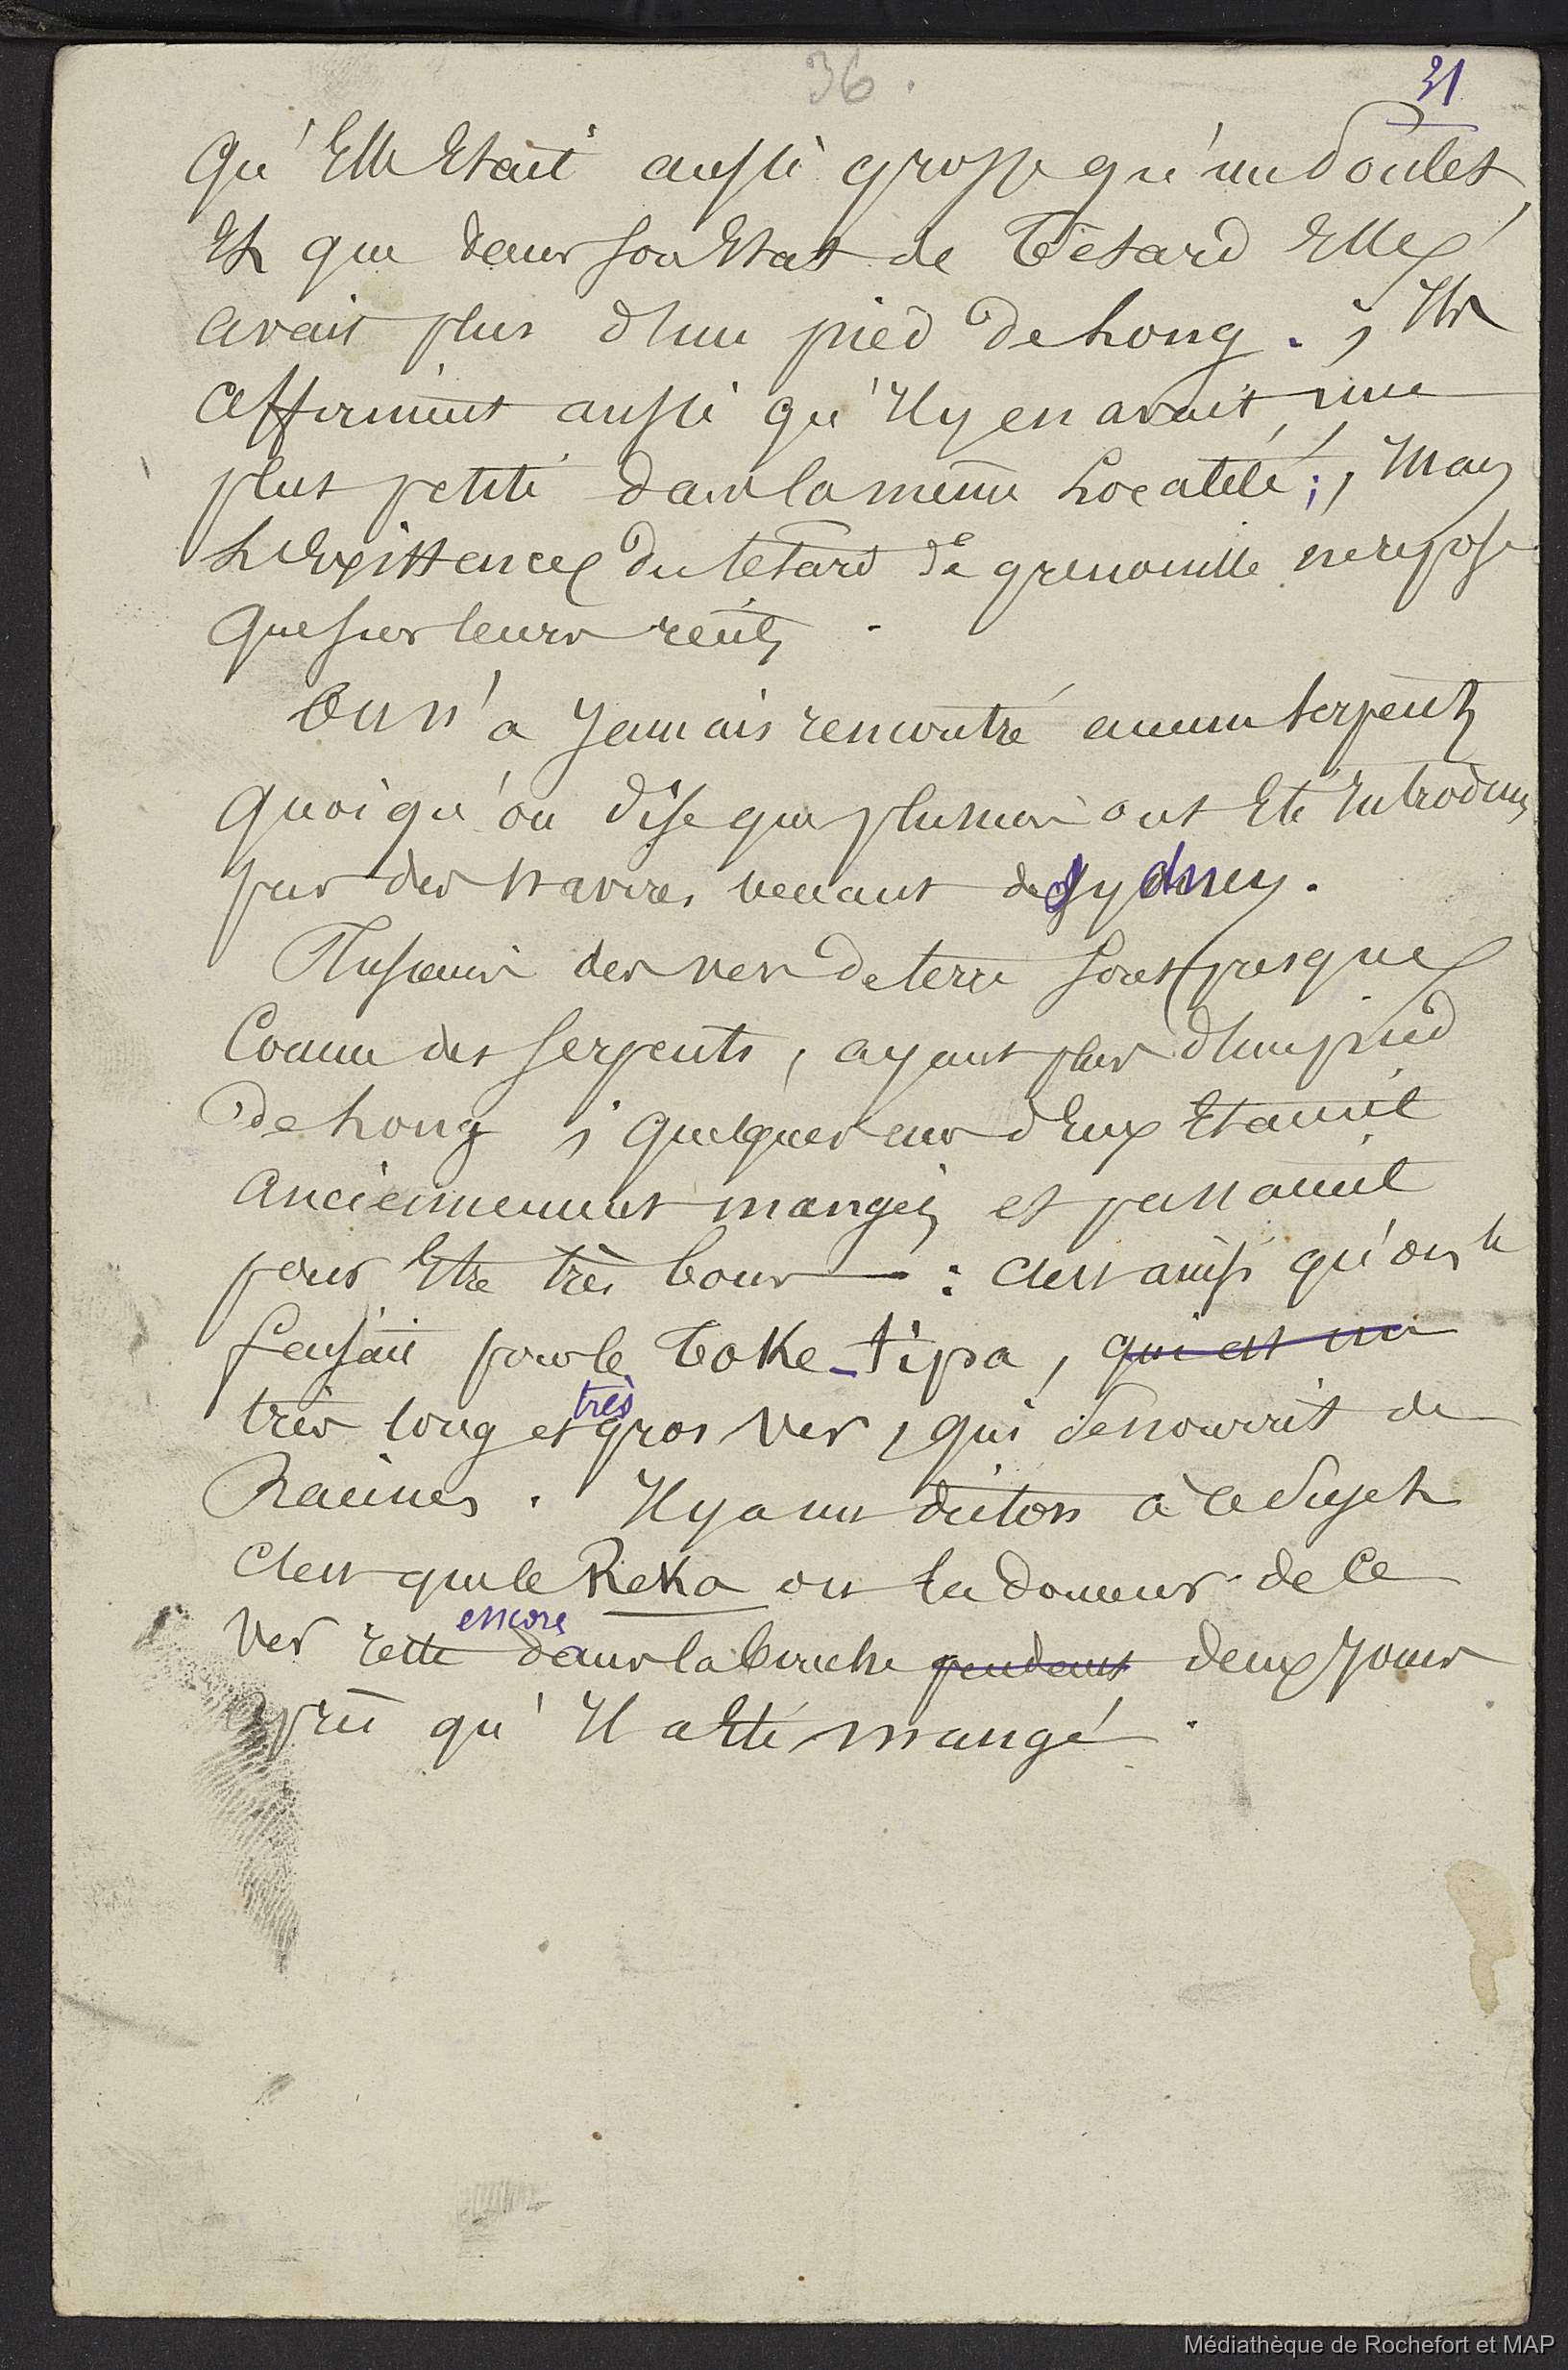 36.
31
Qu'Elle Etait aussi grosse qu'un Poulet,
Et que dans son Etat de Tétard Elle
avait plus d'un pied de Long. ; Ils
affirment aussi qu'Il y en avait, une
plus petite dans la même Localité ; , Mais
L'Existence du tétard de grenouille ne repose
que sur leurs récits .
On n'a Jamais rencontré aucun serpents
quoiqu'on dise que plusieurs ont Eté Introduits
par des navires venant de Sydney.
Plusieurs des vers de terre sont presque
Comme des serpents, ayant plus d'un pied
de Long ; quelques uns d'Eux Etaient
anciennement mangés et passaient
pour Etre très bons — : C'est ainsi qu'on le
faisait pour le Toke-tipa, qui est un
très long et très gros ver, qui se nourrit de
Racines . Il y a un dicton à ce Sujet
C'est que le Reka ou la douceur de Ce
ver reste encore dans la bouche pendant deux Jours
après qu'Il a Eté mangé .
Médiathèque de Rochefort et MAP